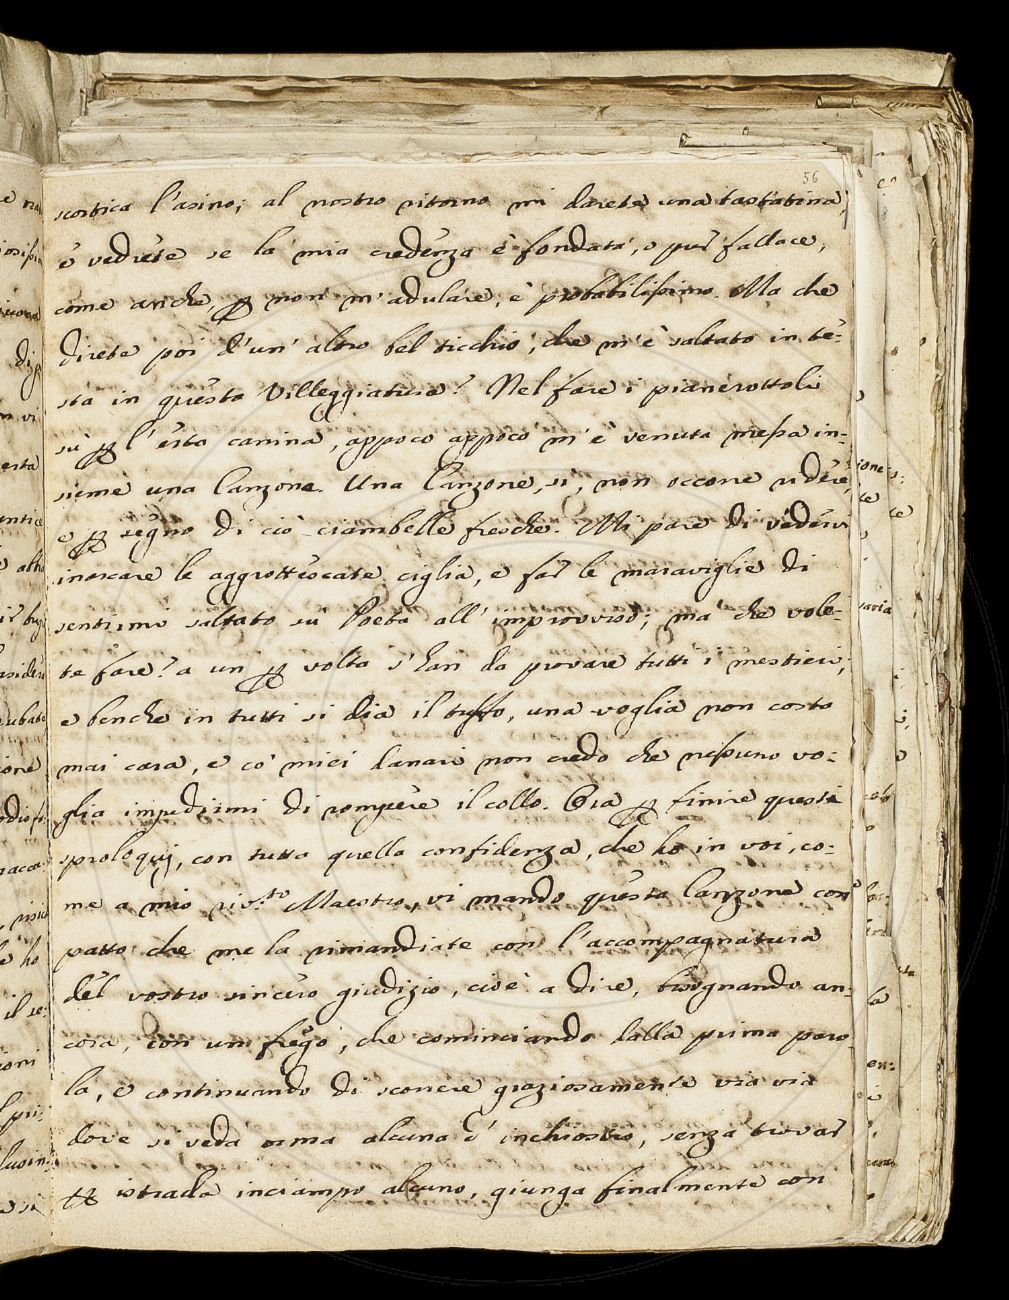 56
scortica l'asino; al nostro ritorno mi darete una tastatina,
e vedrete se la mia credenza è fondata, o pur fallace,
come anche, ꝑ non m'adulare, è probabilissimo. Ma che
direte poi d'un' altro bel ticchio, che m'è saltato in te=
sta in questa Villeggiatura? Nel fare i pianerottoli
sù ꝑ l'erta canina, appoco appoco m'è venuta messa in=
sieme una Canzone. Una Canzone, sì, non occorre ridere,
e ꝑ segno di ciò ciambelle fresche. Mi pare di vedervi
inarcare le aggrotterscate ciglia, e far le maraviglie di
sentirmi saltato sù Poeta all' improvviso; ma che vole=
te fare? a un ꝑ volta s'han da provare tutti i mestieri;
e benche in tutti si dia il tuffo, una voglia non costa
mai cara, e co' miei danari non credo che nessuno vo=
glia impedirmi di rompere il collo. Ora ꝑ finire questi
sproloquij, con tutta quella confidenza, che ho in voi, co=
me a mio riv.to Maestro, vi mando questa Canzone con
patto che me la rimandiate con l'accompagnatura
del vostro sincero giudizio, cioè a dire, bisognando an=
cora, con un frego, che cominciando dalla prima paro
la, e continuando di scorrere graziosamente via via
dove si veda orma alcuna d'inchiostro, senza trovar
ꝑ istrada inciampo alcuno, giunga finalmente con